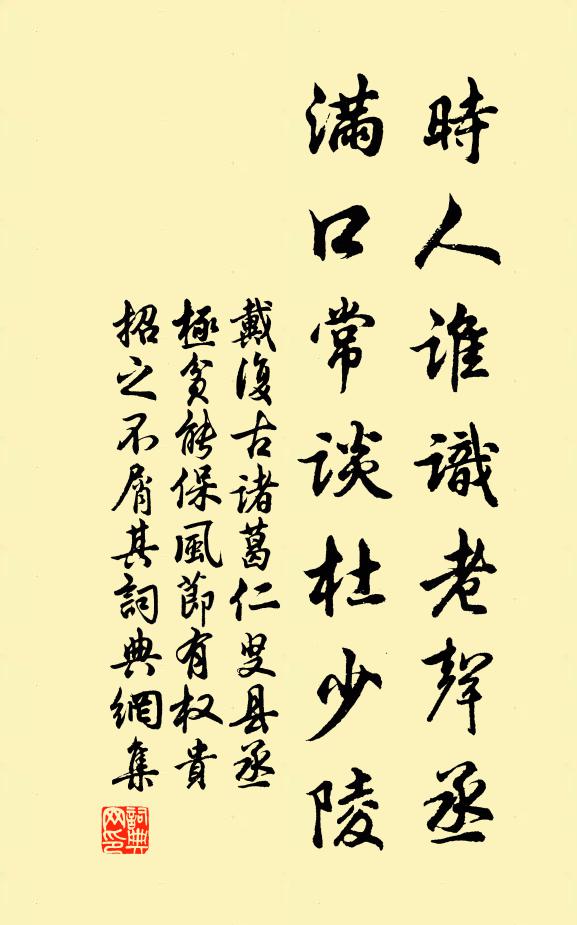 時人誰識老聲丞
滿口常談杜少陵
戴復古諸葛仁叟县丞
極貧能保風節有权貴
招之不屑其詞典網集
詞典网印